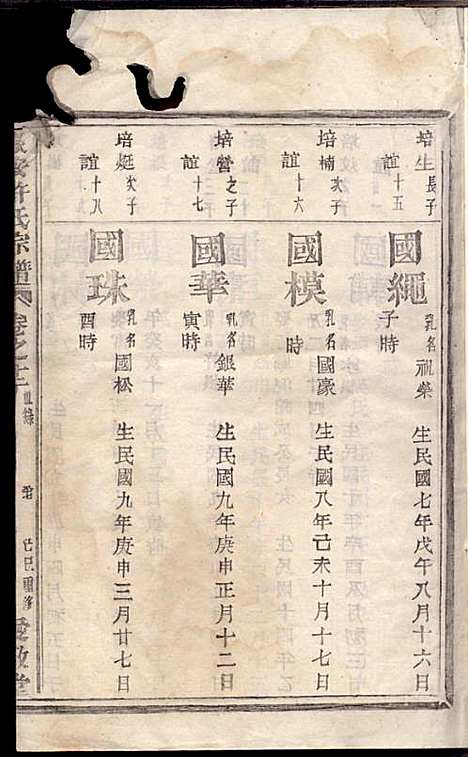 培生長子
誼十五
國繩
乳名祖榮 生民國七年戊午八月十六日
子時
培楠次子
誼十六
國模
乳名國豪 生民國八年己未十月十七日
時
培營之子
誼十七
國華
乳名銀華 生民國九年庚申正月十二日
寅時
培烶次子
誼十八
國珠
乳名國松 生民國九年庚申三月廿七日
酉時
許氏宗譜 卷之十二
己巳續修 愛敬堂